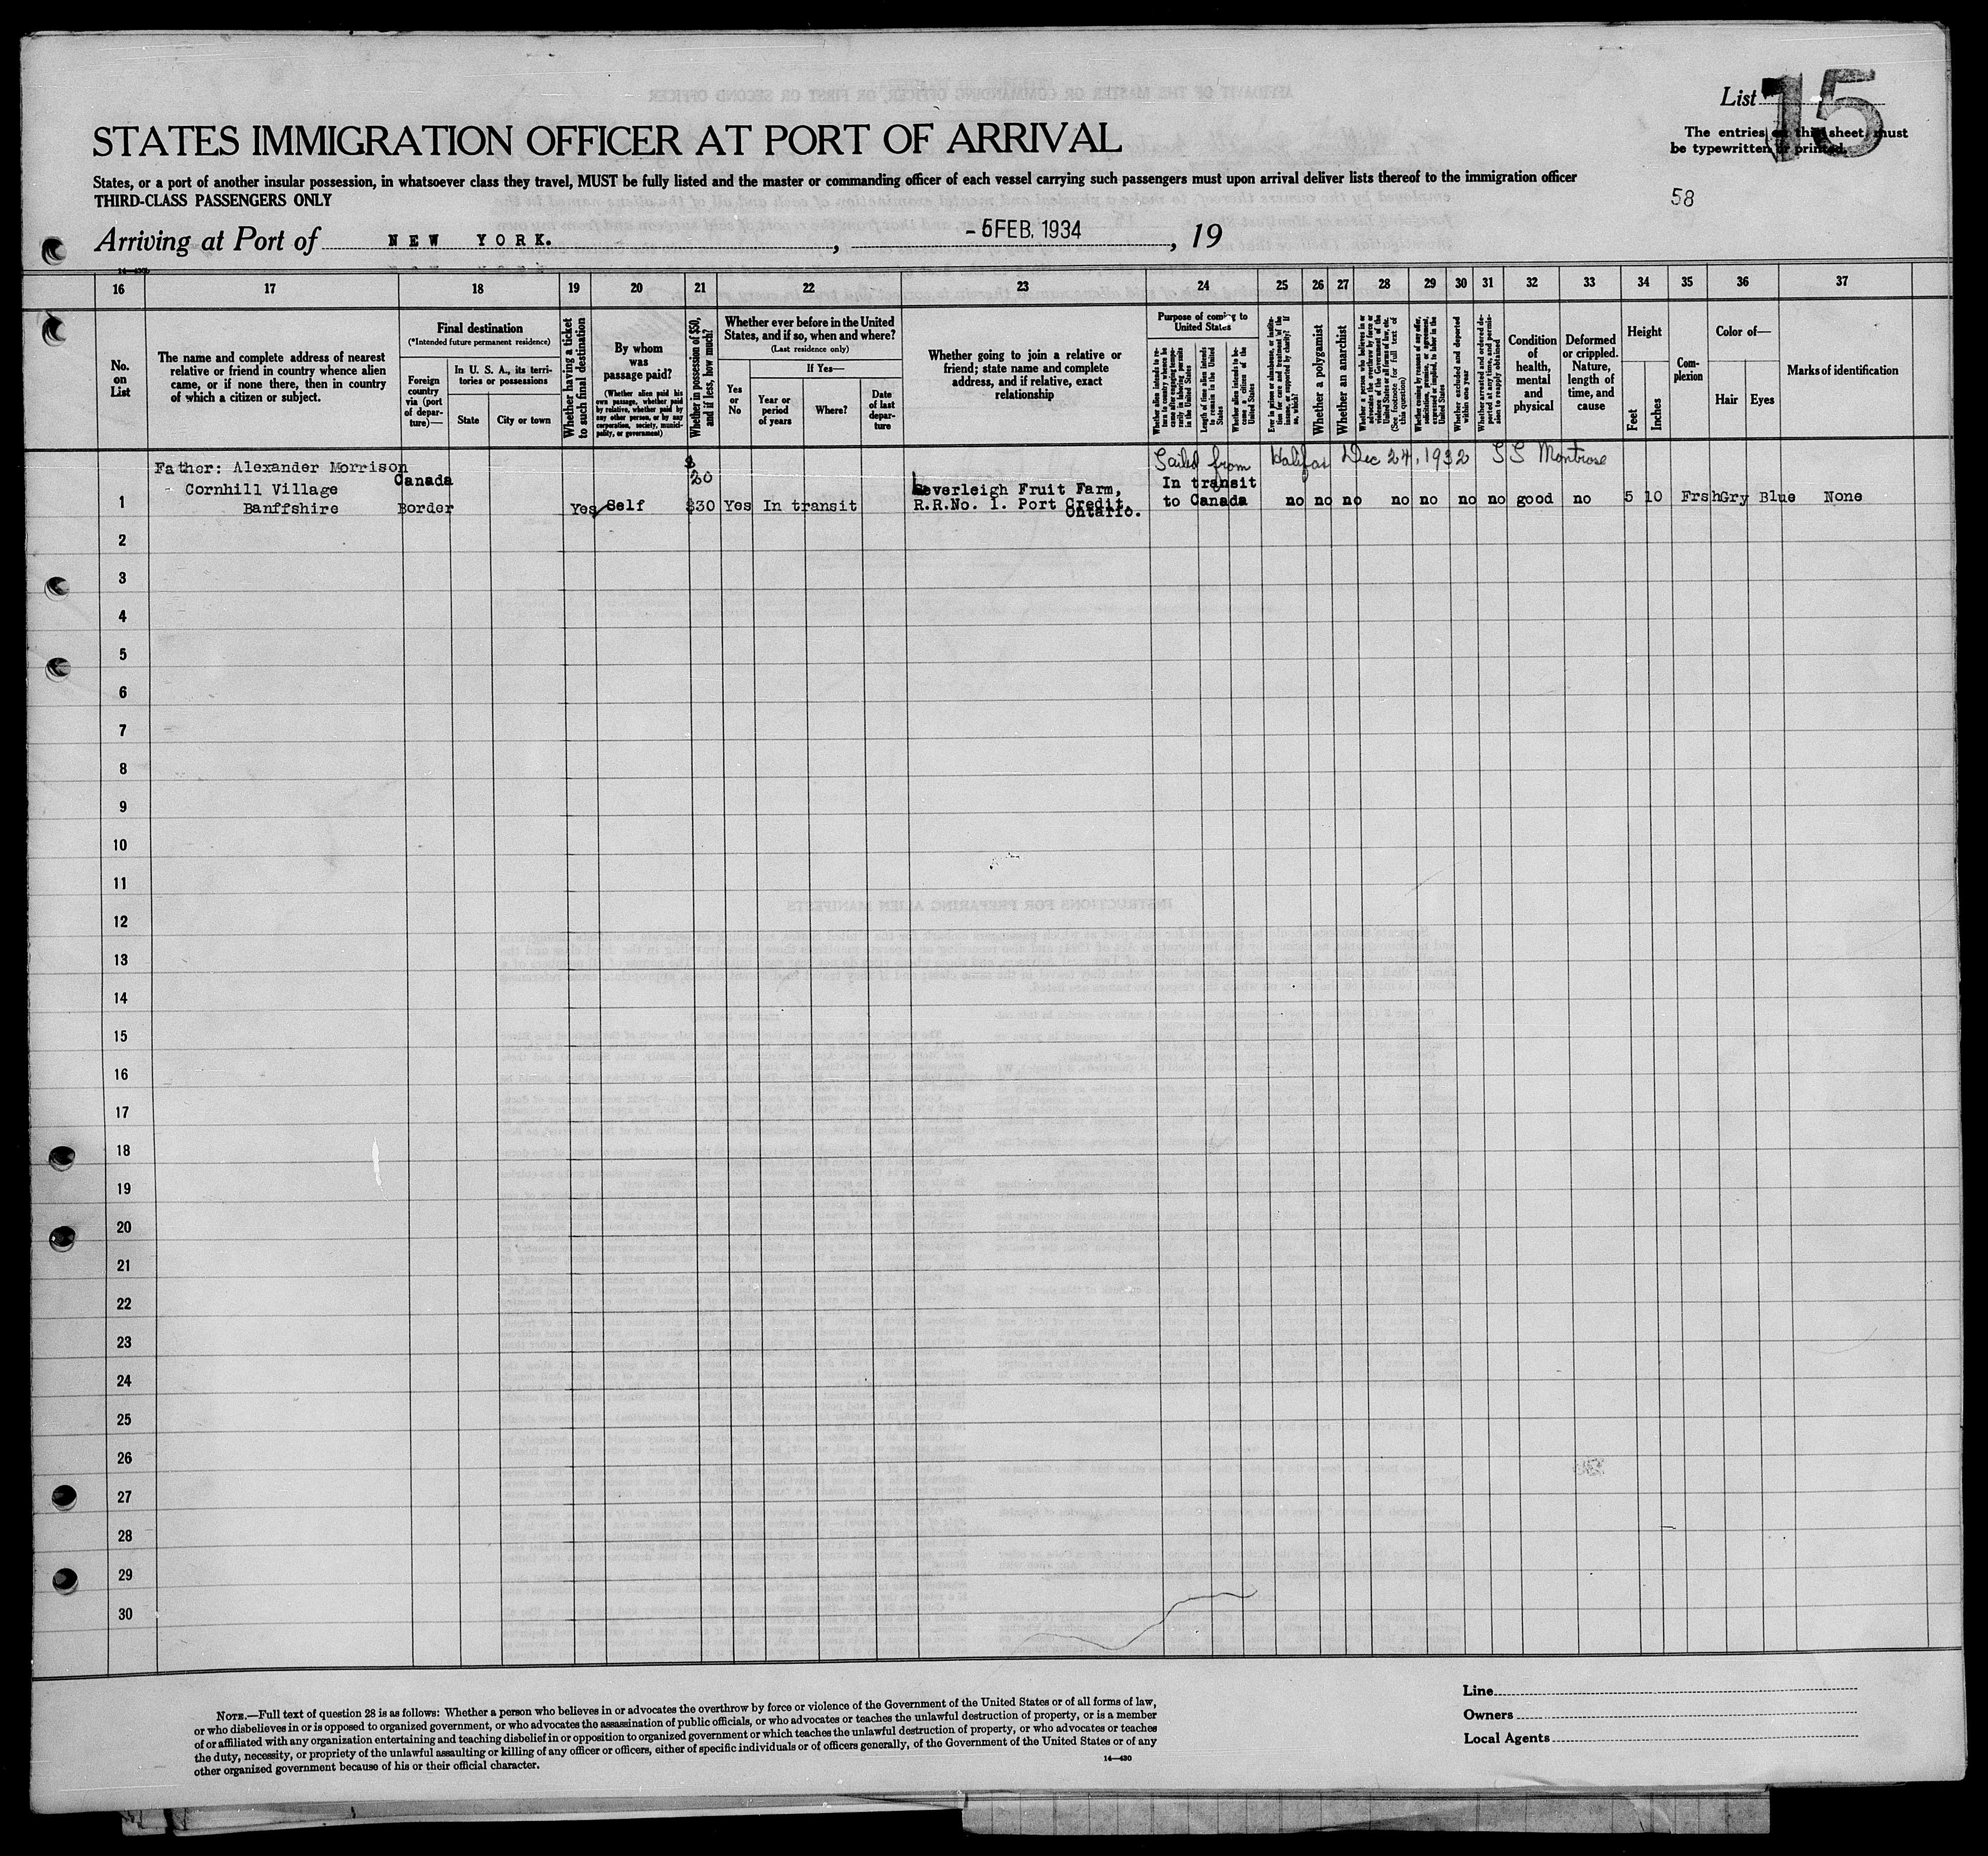 List 15
STATES IMMIGRATION OFFICER AT PORT OF ARRIVAL
The entries on this sheet must
be typewritten or printed.
States, or a port of another insular possession, in whatsoever class they travel, MUST be fully listed and the master or commanding officer of each vessel carrying such passengers must upon arrival deliver lists thereof to the immigration officer
THIRD-CLASS PASSENGERS ONLY
58
Arriving at Port of NEW YORK. , -5 FEB. 1934 , 19
16 17 18 19 20 21 22 23 24 25 26 27 28 29 30 31 32 33 34 35 36 37
No.
on
List
The name and complete address of nearest
relative or friend in country whence alien
came, or if none there, then in country
of which a citizen or subject.
Final destination
(*Intended future permanent residence)
Foreign
country
via (port
of depar-
ture)—
In U. S. A., its terri-
tories or possessions
State
City or town
Whether having a ticket
to such final destination
By whom
was
passage paid?
(Whether alien paid his
own passage, whether paid
by relative, whether paid by
any other person, or by any
corporation, society, munici-
pality, or government)
Whether in possession of $50,
and if less, how much?
Whether ever before in the United
States, and if so, when and where?
(Last residence only)
Yes
or
No
If Yes—
Year or
period
of years
Where?
Date
of last
depar-
ture
Whether going to join a relative or
friend; state name and complete
address, and if relative, exact
relationship
Purpose of coming to
United States
Whether alien intends to re-
turn to country whence he
came after engaging tempo-
rarily in laboring pursuits
in the United States
Length of time alien intends
to remain in the United
States
Whether alien intends to be-
come a citizen of the
United States
Ever in prison or almshouse, or institu-
tion for care and treatment of the
insane, or supported by charity? If
so, which?
Whether a polygamist
Whether an anarchist
Whether a person who believes in or
advocates the overthrow by force or
violence of the Government of the
United States or all forms of law, etc.
(See footnote for full text of
this question)
Whether coming by reason of any offer,
solicitation, promise, or agreement,
expressed or implied, to labor in the
United States
Whether excluded and deported
within one year
Whether arrested and ordered de-
ported at any time, and permis-
sion to reapply obtained
Condition
of
health,
mental
and
physical
Deformed
or crippled.
Nature,
length of
time, and
cause
Height
Feet
Inches
Com-
plexion
Color of—
Hair
Eyes
Marks of identification
Sailed from Halifax Dec 24, 1932 SS Montrose
Father: Alexander Morrison
Cornhill Village
Banffshire
Canada
Border
Yes
Self
$
20
$30
Yes
In transit
Beverleigh Fruit Farm,
R.R.No. 1. Port Credit,
Ontario.
In transit
to Canada
no no no no no no no good no 5 10 Frsh Gry Blue None
1
2
3
4
5
6
7
8
9
10
11
12
13
14
15
16
17
18
19
20
21
22
23
24
25
26
27
28
29
30
NOTE.—Full text of question 28 is as follows: Whether a person who believes in or advocates the overthrow by force or violence of the Government of the United States or of all forms of law,
or who disbelieves in or is opposed to organized government, or who advocates the assassination of public officials, or who advocates or teaches the unlawful destruction of property, or is a member
of or affiliated with any organization entertaining and teaching disbelief in or opposition to organized government or which teaches the unlawful destruction of property, or who advocates or teaches
the duty, necessity, or propriety of the unlawful assaulting or killing of any officer or officers, either of specific individuals or of officers generally, of the Government of the United States or of any
other organized government because of his or their official character.
14—430
Line
Owners
Local Agents